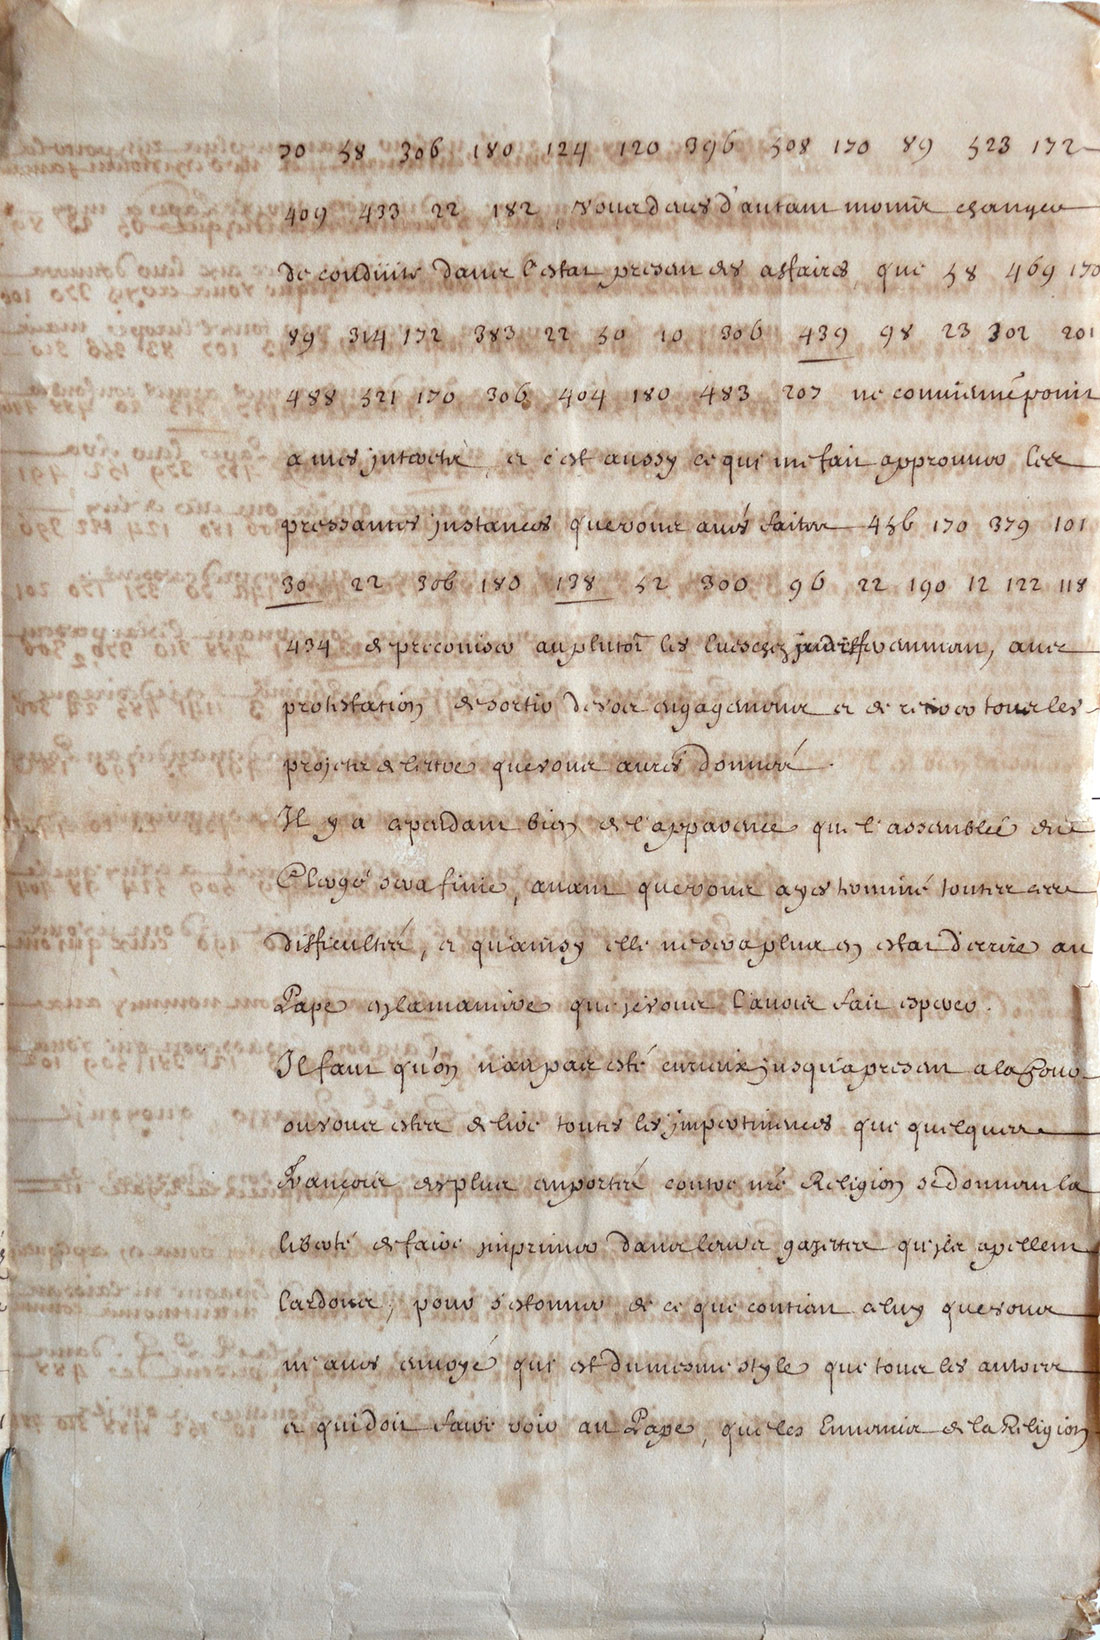 70 58 306 180 124 120 396 508 170 89 523 172
409 433 22 182, vous deués d'autant moins changer
de conduitte dans l'estat present des affaires, que 58 469 170
89 314 172 383 22 50 10 306 439 98 23 302 201
488 521 170 306 404 180 483 207 ne conuienne point
a mes jnterets, et c'est aussy ce qui me fait approuuer les
pressantes jnstances que vous aués faites 456 170 379 101
30 22 306 180 138 52 300 96 22 190 12 122 118
434 de preconiser au plutost les Euesques jndifferemment, auec
protestation de sortir de vos engagemens et de retirer tous les
projets de lettre que vous aurés donnés.
Il y a cependant bien de l'apparence que l'assemblée du
Clergé sera finie, auant que vous ayez terminé toutes ces
difficultés, et qu'ainsy elle ne sera plus en estat d'ecrire au
Pape en la maniere que je vous l'auois fait esperer.
Il faut qu'on n'ait pas esté curieux jusqu'a present a la Cour
ou vous estes de lire toutes les jmpertinences que quelques
François des plus emportés contre nre Religion se donnent la
liberté de faire jmprimer dans leurs gazettes qu'jls apellent
Lardons, pour s'estonner de ce que contient celuy que vous
m'aues enuoyé qui est du mesme style que tous les autres
et qui doit faire voir au Pape, que les Ennemis de la Religion